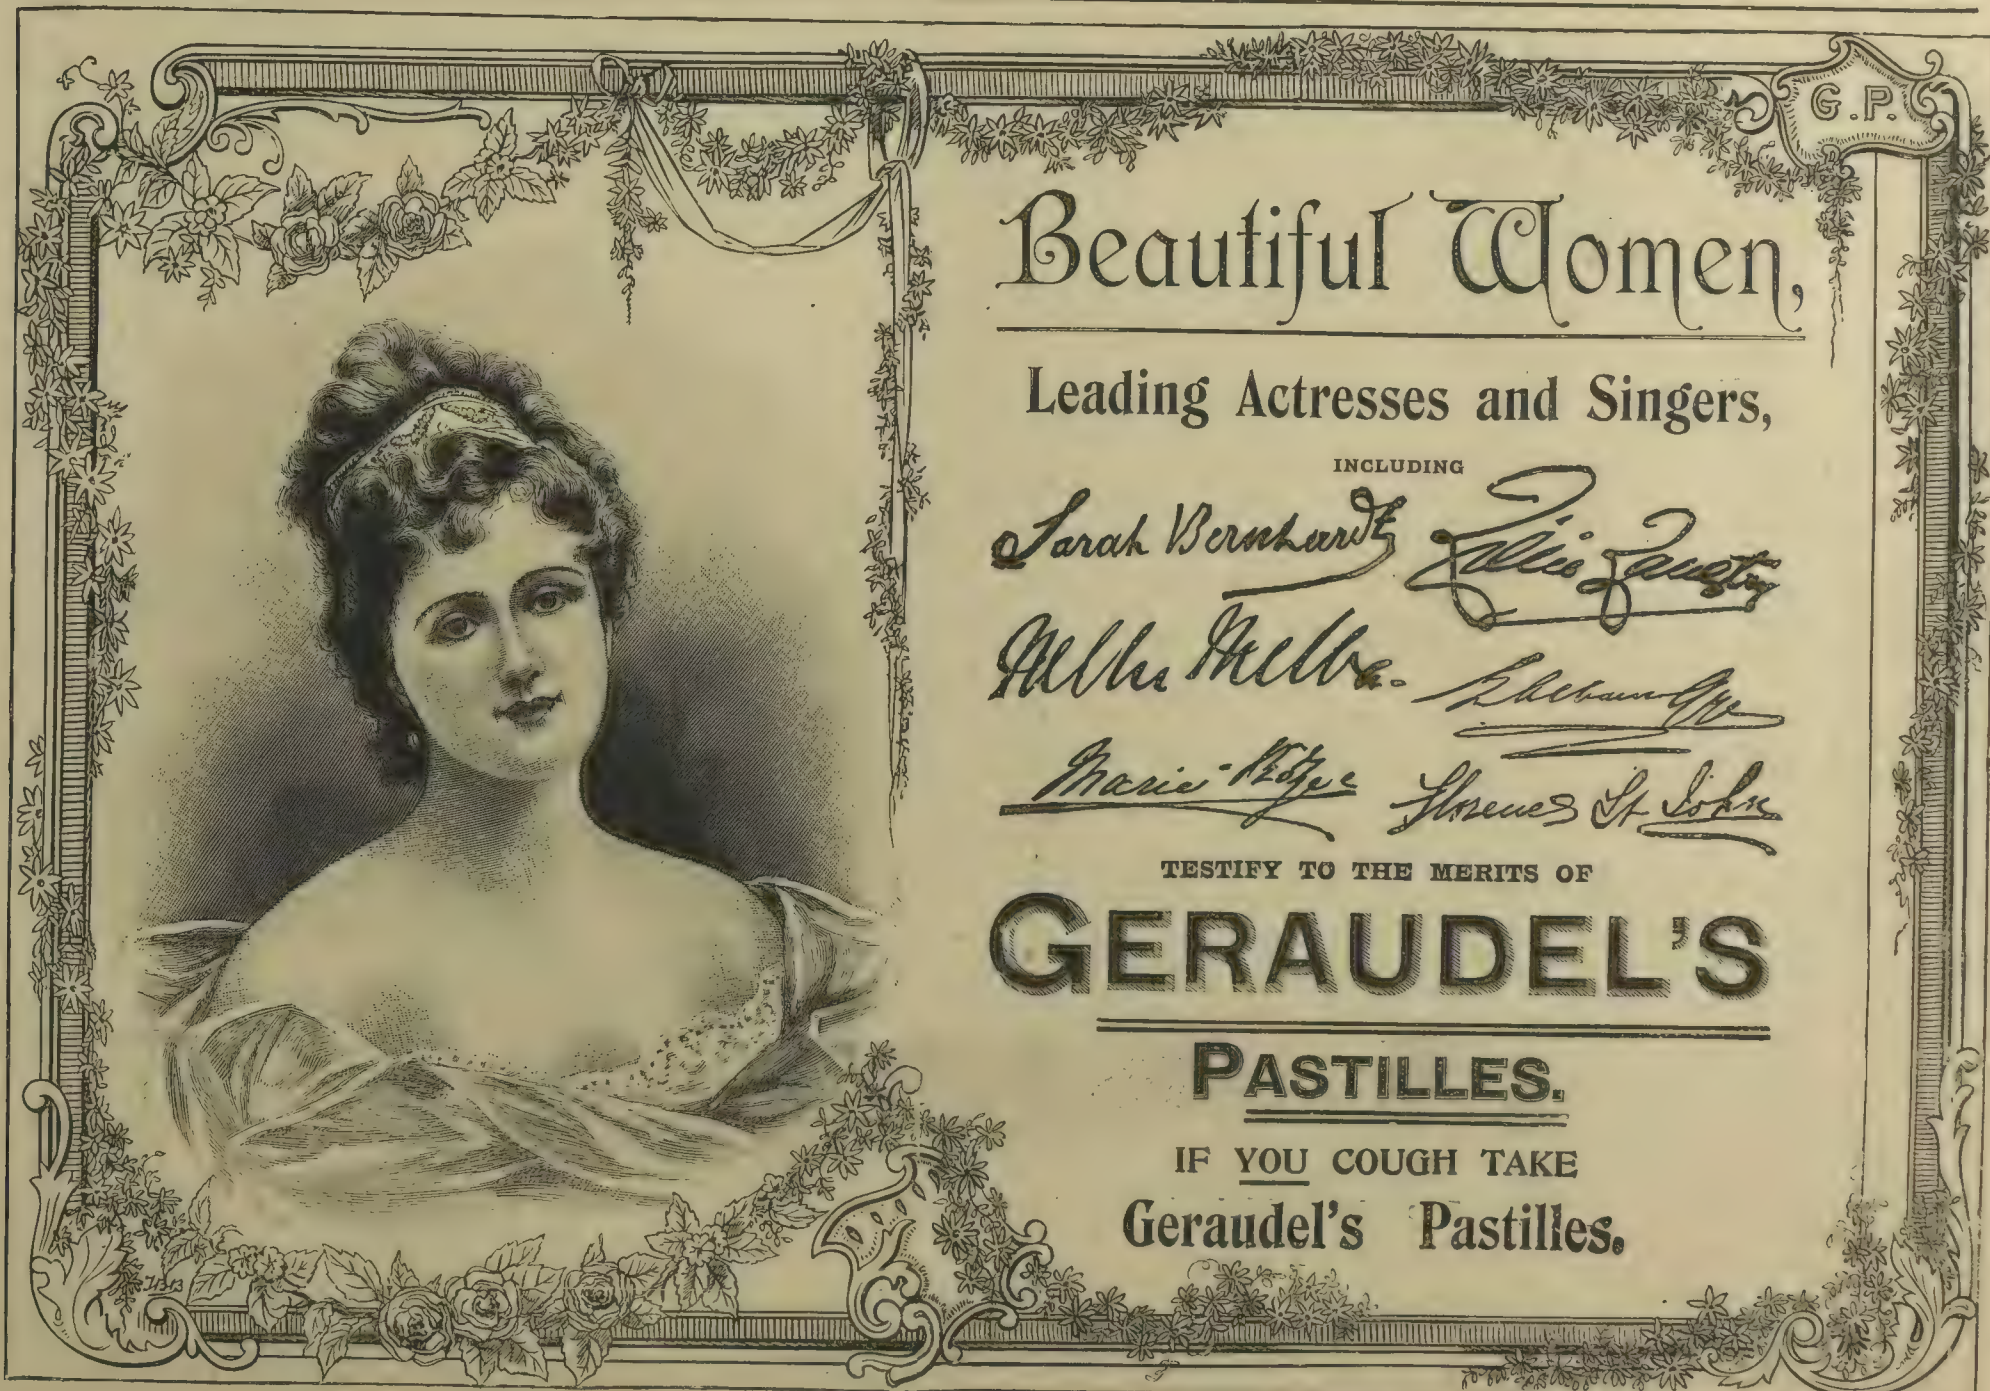 G.P.
Beautiful Women,
Leading Actresses and Singers,
INCLUDING
Sarah Bernhardt Lillie Langtry
Nellie Melba. E Albani Gye
Marie Roze Florence St John
TESTIFY TO THE MERITS OF
GERAUDEL'S
PASTILLES.
IF YOU COUGH TAKE
Geraudel's Pastilles.